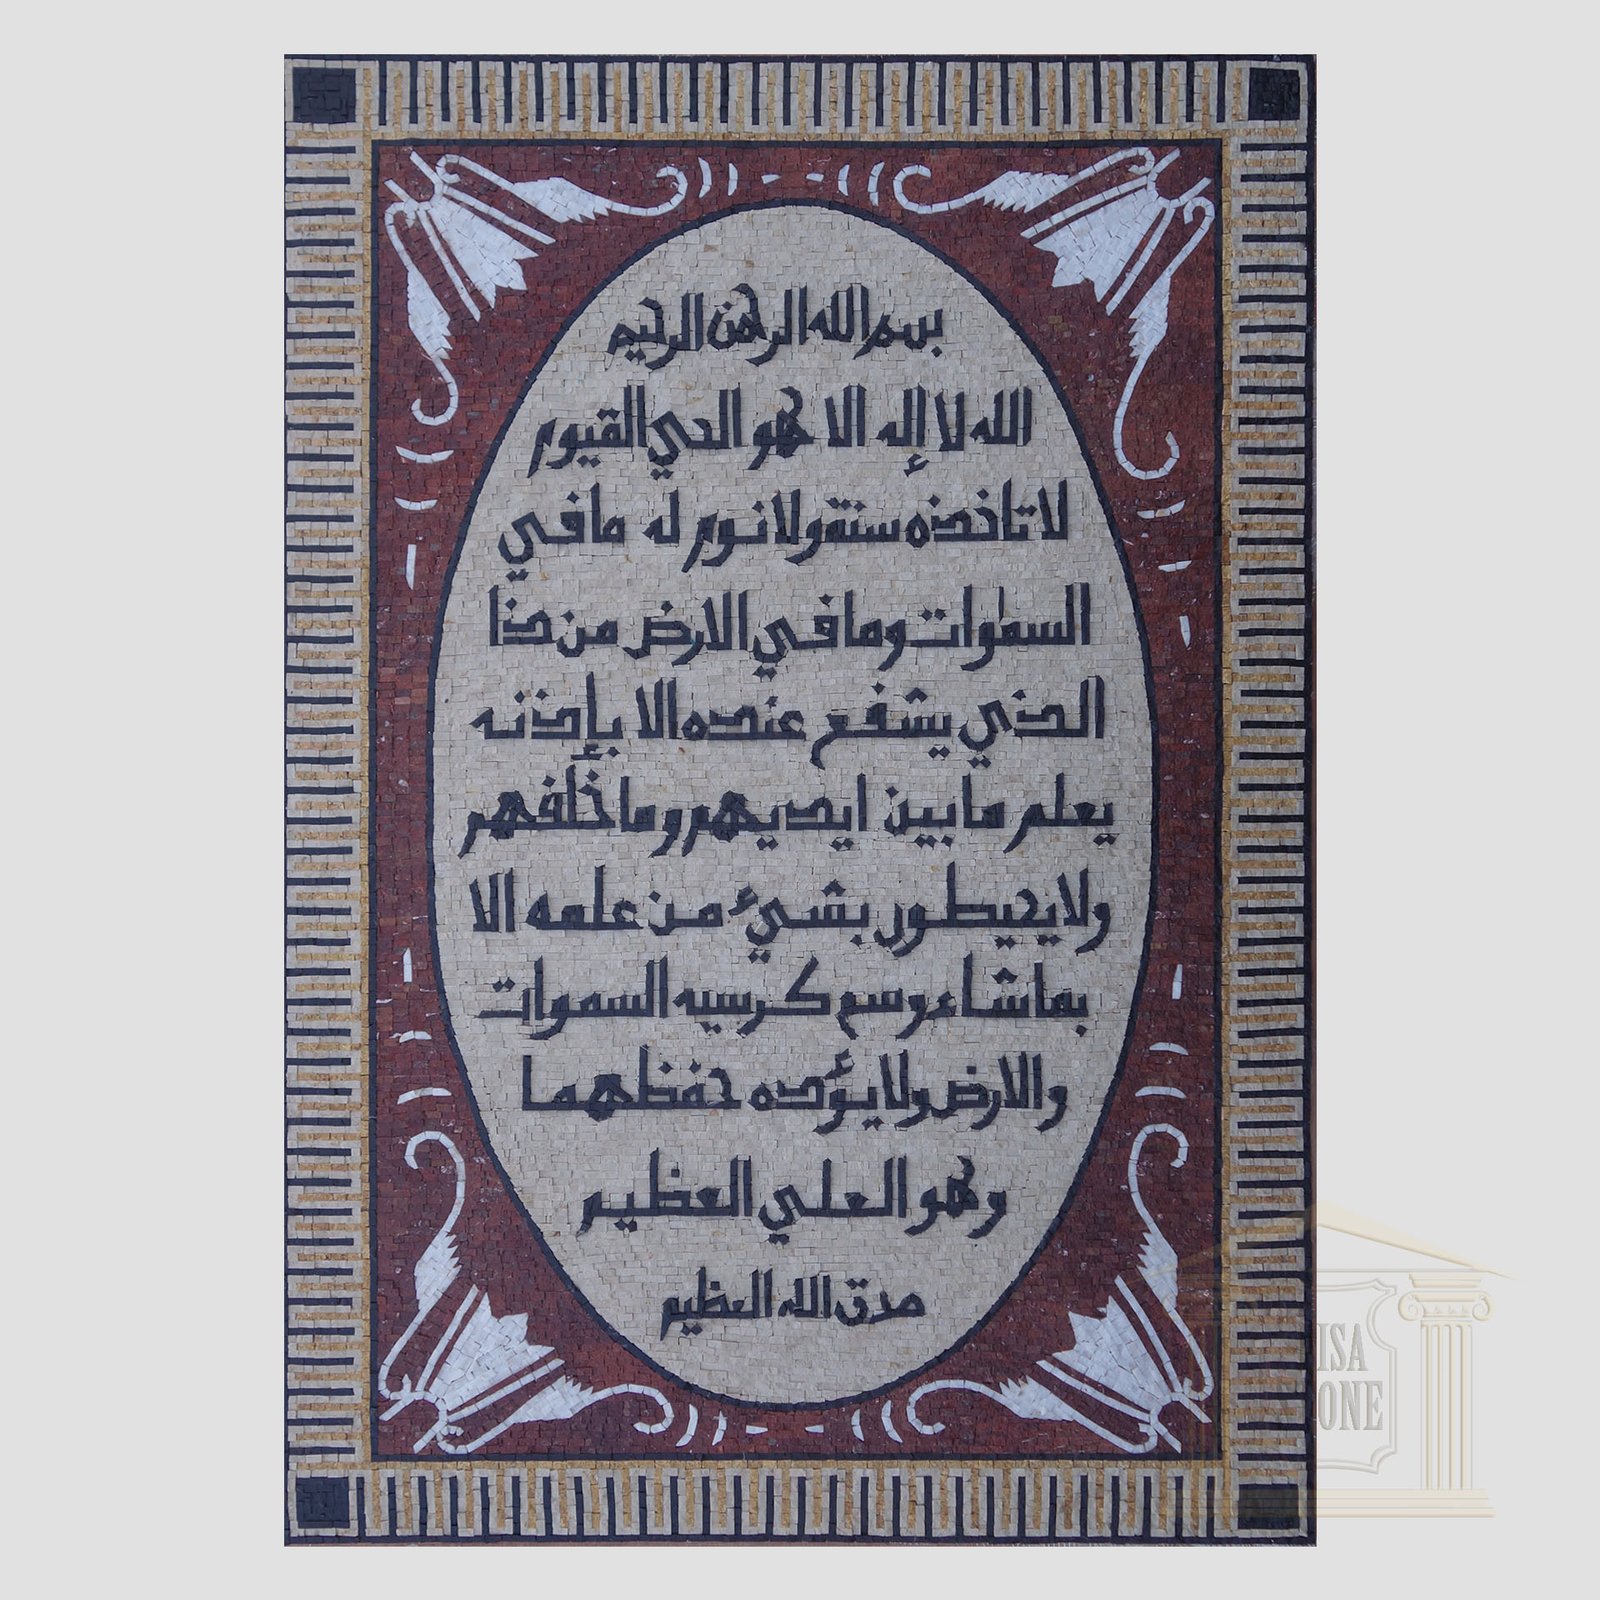 بسم الله الرحمن الرحيم
الله لا إله الا هو الحي القيوم
لا تاخذه سنة ولا نوم له ما في
السموات وما في الارض من ذا
الذي يشفع عنده الا بإذنه
يعلم ما بين ايديهم وما خلفهم
ولا يحيطون بشيء من علمه الا
بماشاء وسع كرسيه السموات
والارض ولا يؤده حفظهما
وهو العلي العظيم
صدق الله العظيم
ISA
ONE